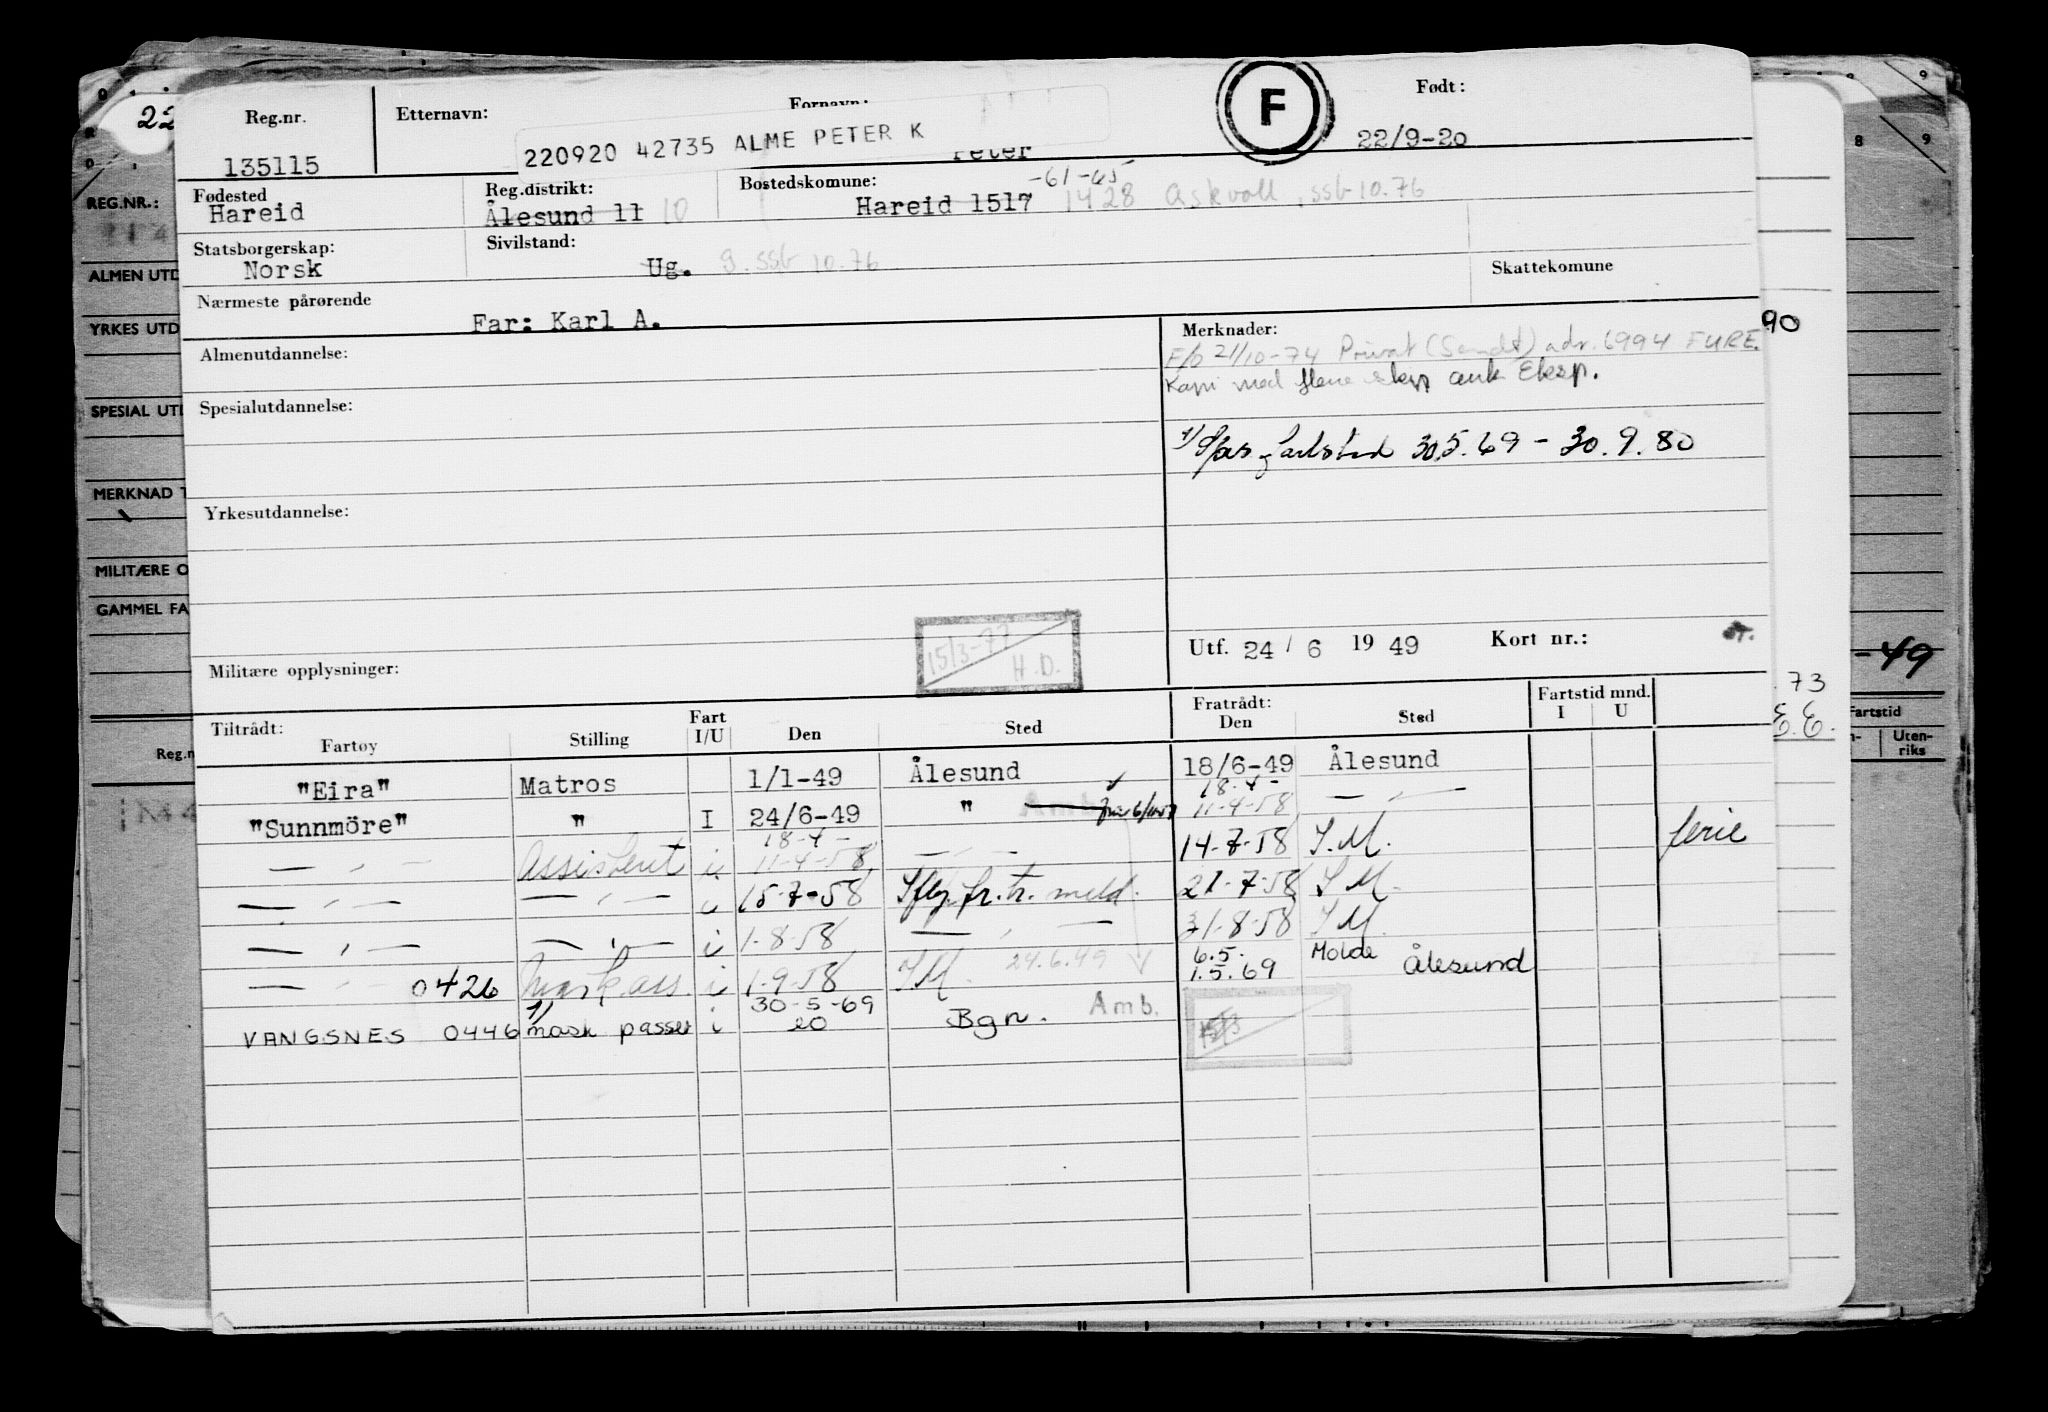 Reg.nr. Etternavn: Fornavn: F Født:
135115 220920 42735 ALME PETER K Peter 22/9-20
Fødested Reg.distrikt: Bostedskomune: -61-65
Hareid Ålesund 11 10 Hareid 1517 1428 Askvoll, ssb 10.76
Statsborgerskap: Sivilstand:
Norsk Ug. g. ssb 10.76 Skattekomune
Nærmeste pårørende
Far: Karl A.
Almenutdannelse: Merknader:
F/o 21/10-74 Privat (Sendt) adr. 6994 FURE.
Kapi med flere ank Eksp.
Spesialutdannelse:
1) 30.5.69 - 30.9.80
Yrkesutdannelse:
Utf. 24/6 1949 Kort nr.:
Militære opplysninger: 15/3-77 H.D.
Tiltrådt: Fart Fratrådt: Fartstid mnd.
Fartøy Stilling I/U Den Sted Den Sted I U
"Eira" Matros 1/1-49 Ålesund 18/6-49 Ålesund
18-4-
"Sunnmöre" " I 24/6-49 " Amb 11-4-58 — " —
18-4-
— " — Assistent i 11-4-58 — " — 14-7-58 S.M. ferie
— " — — " — i 15-7-58 fr. tr. meld. 21-7-58 S M.
— " — — " — i 1-8-58 — " — 31-8-58 S M.
6.5. Molde
— " — 0426 Mask.ass. i 1-9-58 S M. 24.6.49 1.5.69 Ålesund
1) 30-5-69
VANGSNES 0446 mask passer i 20 Bgn. Amb. 15/3
22
REG.NR.:
ALMEN UTD
YRKES UTD
SPESIAL UTD
MERKNAD T
MILITÆRE O
GAMMEL FA
Reg.n
90
-49
.73
E.E.
Fartstid
Uten-
riks